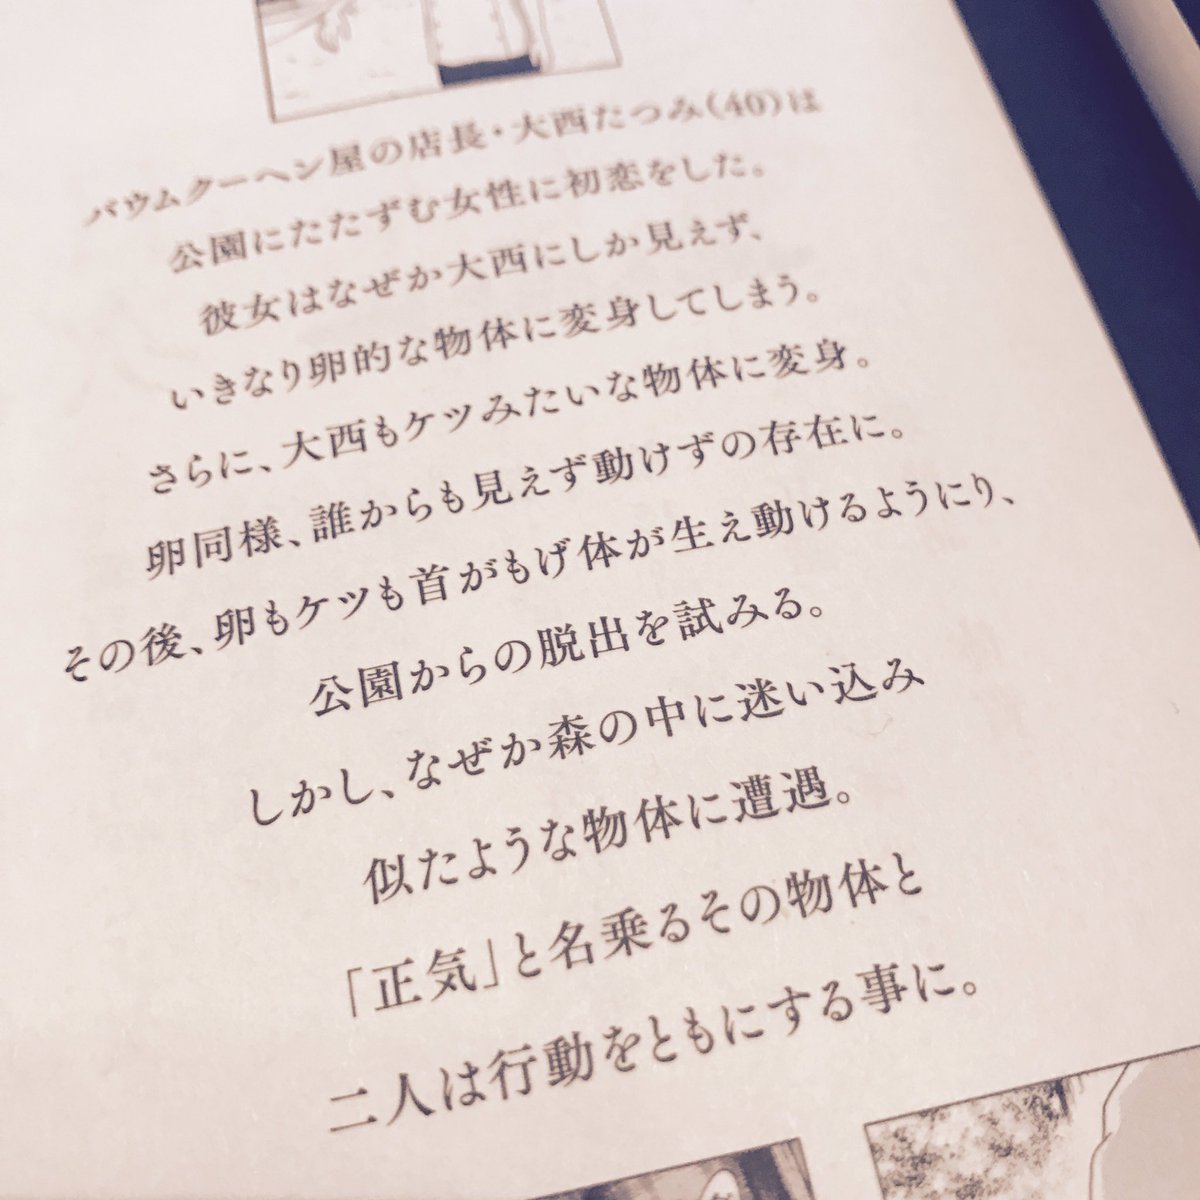 バウムクーヘン屋の店長・大西たつみ(40)は
公園にたたずむ女性に初恋をした。
彼女はなぜか大西にしか見えず、
いきなり卵的な物体に変身してしまう。
さらに、大西もケツみたいな物体に変身。
卵同様、誰からも見えず動けずの存在に。
その後、卵もケツも首がもげ体が生え動けるようにり、
公園からの脱出を試みる。
しかし、なぜか森の中に迷い込み
似たような物体に遭遇。
「正気」と名乗るその物体と
二人は行動をともにする事に。